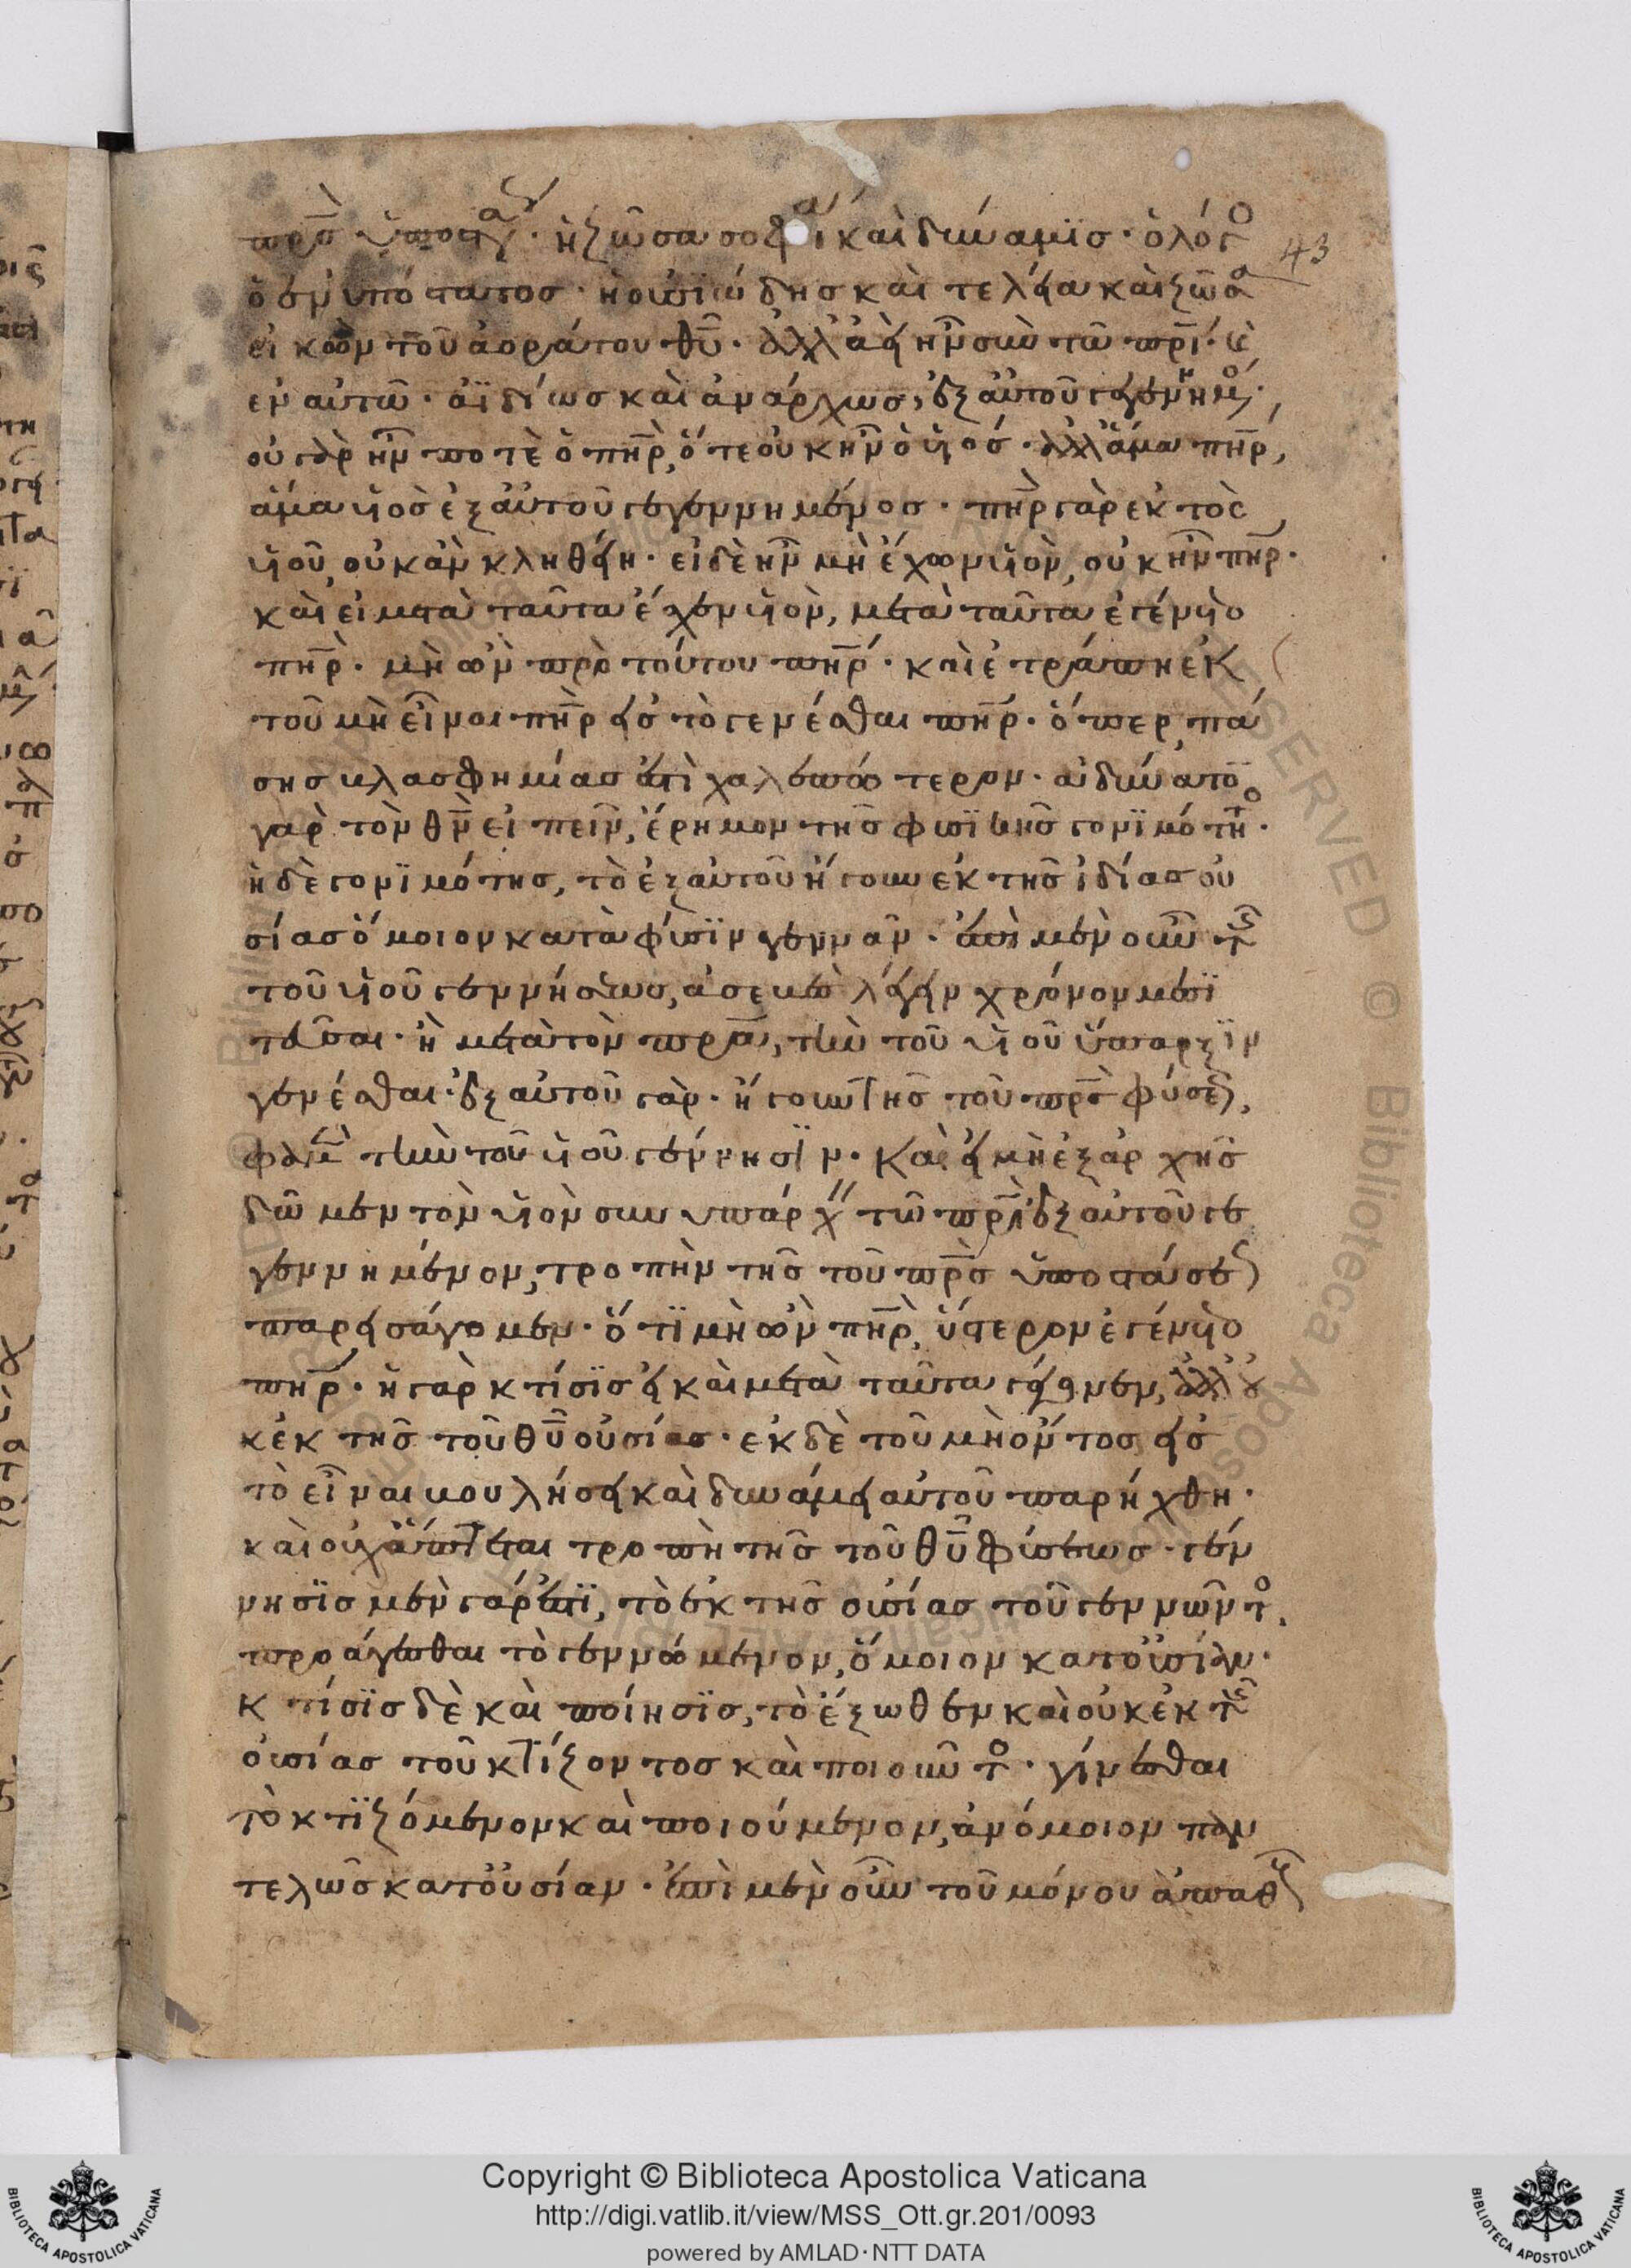 πρ̅σ ὑποστα · ἡ ζῶσα σοφία καὶ δύναμϊσ · ὁ λόγο
43
ὁ ἐνυπόστατοσ · ἡ οὐσιώδησ καὶ τελεία καὶ ζῶσα
εἰκὼν τοῦ ἀοράτου θῦ · ἀλλ᾽ ἀεὶ ἦν σὺν τῶ πρ̅ι · καὶ
ἐν αὐτῶ · ἀϊδίωσ καὶ ἀνάρχωσ, ἐξ αὐτοῦ γεγεννημέ ·
οὐ γὰρ ἦν ποτὲ ὁ πη̅ρ, ὅτε οὐκ ἦν ὁ υἱόσ · ἀλλ᾽ ἅμα πη̅ρ,
ἅμα υἱὸσ ἐξ αὐτοῦ γεγεννημένοσ · πη̅ρ γὰρ ἐκτὸσ
υἱοῦ, οὐκ ἂν κληθείη · εἰ δὲ ἦν μὴ ἔχων υἱὸν, οὐκ ἦν πη̅ρ ·
καὶ εἰ μετὰ ταῦτα ἔσχεν υἱὸν, μετὰ ταῦτα ἐγένετο
πη̅ρ · μὴ ὢν πρὸ τούτου πη̅ρ · καὶ ἐτράπη ἐκ
τοῦ μὴ εἶναι πη̅ρ εἰσ τὸ γενέσθαι πη̅ρ · ὅπερ πά
σησ βλασφημίασ ἐστὶ χαλεπώτερον · ἀδύνατο
γαρ τὸν θν̅ εἰπεῖν, ἔρημον τῆσ φυσϊκῆσ γονϊμότη ·
ἡ δὲ γονϊμότησ, τὸ ἐξ αὐτοῦ ἤγουν ἐκ τῆσ ἰδίασ οὐ
σίασ ὅμοιον κατὰ φύσϊν γεννᾶν · ἐπὶ μὲν οὖν τῆς
τοῦ υἱοῦ γεννήσεωσ, ἀσεβὲσ λέγειν χρόνον μεσϊ
τεῦσαι · ἢ μετὰ τὸν πρ̅α, τὴν τοῦ υἱοῦ ὕπαρξϊν
γενέσθαι · ἐξ αὐτοῦ γὰρ · ἤγουν τῆσ τοῦ πρ̅σ φύσε,
φαμὲν τὴν τοῦ υἱοῦ γέννησϊν · Καὶ εἰ μὴ ἐξ ἀρχῆσ
δῶμεν τὸν υἱὸν συνυπάρχ τῶ πρ̅ι ἐξ αὐτοῦ γε
γεννημένον, τροπὴν τῆσ τοῦ πρ̅σ ὑποστάσε
παρεισάγομεν · ὅτϊ μὴ ὢν πη̅ρ, ὕστερον ἐγένετο
πη̅ρ · ἡ γὰρ κτίσϊσ εἰ καὶ μετὰ ταῦτα γέγονεν, ἀλλ᾽ οὐ
κ ἐκ τῆσ τοῦ θῦ οὐσίασ · ἐκ δὲ τοῦ μὴ ὄντοσ εἰσ
τὸ εἶναι βουλήσει καὶ δυνάμει αὐτοῦ παρήχθη ·
καὶ οὐχ ἅπτεται τροπὴ τῆσ τοῦ θῦ φύσεωσ · γέν
νησϊσ μὲν γάρ ἐστϊ, τὸ ἐκ τῆσ οὐσίασ τοῦ γεννῶντο,
προάγεσθαι τὸ γεννώμενον, ὅμοιον κατ᾽ οὐσίαν ·
Κτίσϊσ δὲ καὶ ποίησϊσ, τὸ ἔξωθεν καὶ οὐκ ἐκ τῆς
οὐσίασ τοῦ κτίζοντοσ καὶ ποιοῦντο · γίνεσθαι
τὸ κτϊζόμενον καὶ ποιούμενον, ἀνόμοιον παν
τελῶσ κατ᾽ οὐσίαν · ἐπὶ μὲν οὖν τοῦ μόνου ἀπαθ
Copyright © Biblioteca Apostolica Vaticana
http://digi.vatlib.it/view/MSS_Ott.gr.201/0093
powered by AMLAD·NTT DATA
BIBLIOTECA APOSTOLICA VATICANA
BIBLIOTECA APOSTOLICA VATICANA